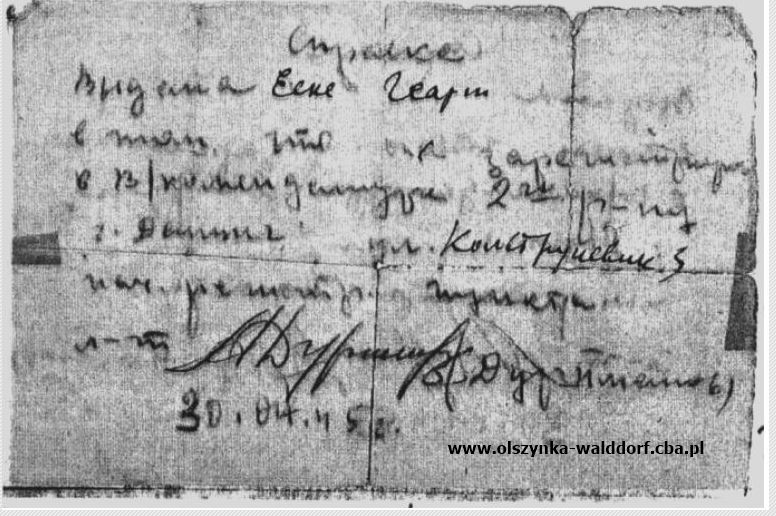 Справка
Выдана Еске Геарт
в том, что он зарегистрир
в В/комендатуре 2го р-на
г. Данциг ул.
нач. регистр. пункта
л-т
30.04.45г.
www.olszynka-walddorf.cba.pl